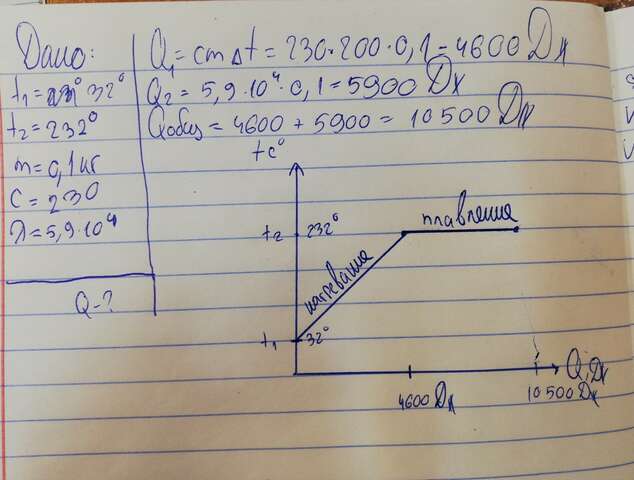 Дано:
t₁ = 32°
t₂ = 232°
m = 0,1 кг
C = 230
λ = 5,9·10⁴
Q-?
Q₁ = cmΔt = 230·200·0,1 = 4600 Дж
Q₂ = 5,9·10⁴·0,1 = 5900 Дж
Qобщ = 4600 + 5900 = 10 500 Дж
t c°
t₂ 232°
плавление
нагревание
t₁ 32°
Q, Дж
4600 Дж
10 500 Дж